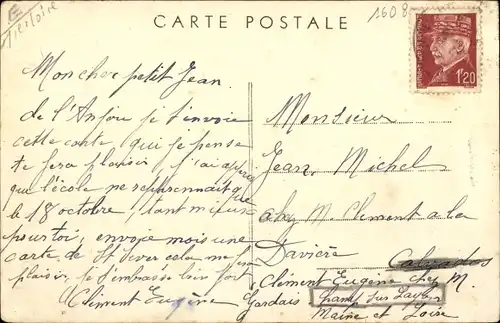 CARTE POSTALE
1608
1F20
Mon cher petit Jean
de l'Anjou je t'envoie
cette carte, qui je pense
te fera plaisir, j'ai appris
que l'école ne reprennait que
le 18 octobre, tant mieux
pour toi, envoie mois une
carte de St Sever cela me fera
plaisir, je t'embrasse bien fort
Clément Eugène
Monsieur
Jean Michel
chez M. Clement a la
Davière
Calvados
Clément Eugène chez M.
Gardais Champ sur Layon
Maine et Loire